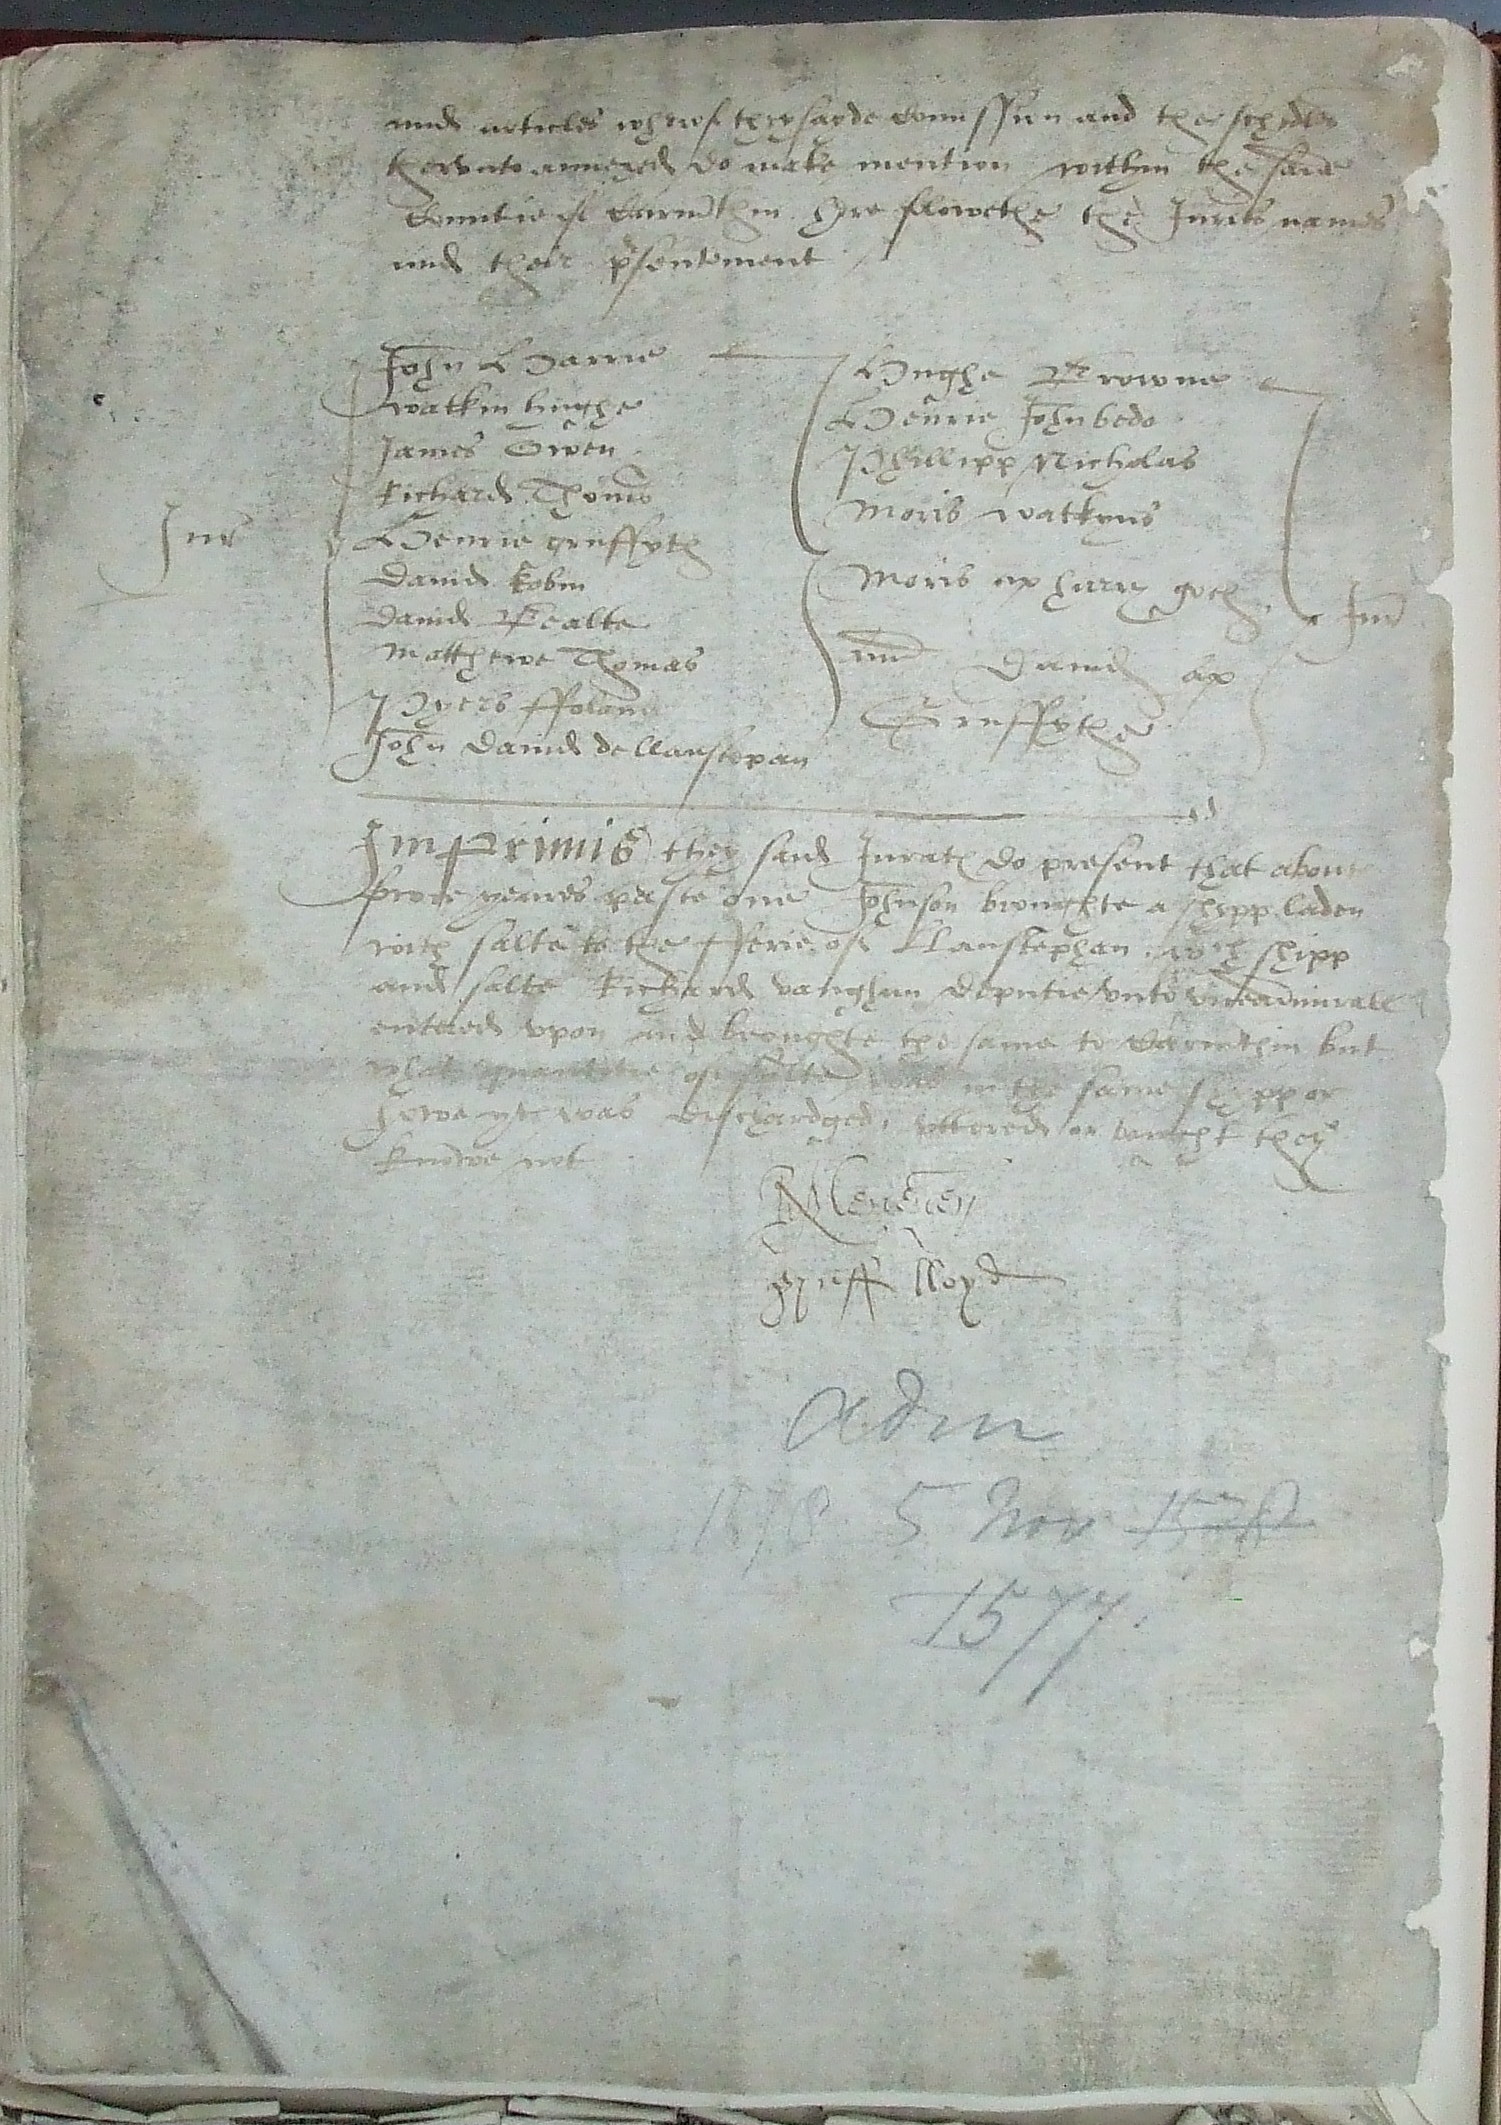 and articles wherof they sayde Comission and the schedles
therunto annexed do make mention within the said
Countie of Carmthin here folowethe the Jurates names
and their p'sentement
Jur'
John Harrie
watkin hughe
James Owen
Richard Thom's
Henrie gruffyth
david Robin
david Bealte
Matthewe Thomas
Pyers ffolan
John david de llanstepan
Hughe Browne
Henrie John bedo
Phillipp Nicholas
Moris watkyns
Moris ap harry goch
and david ap
Gruffythe
Jur'
Imprimis they said Jurates do present that about
fyve yeares paste one Johnson broughte a shipp laden
with salte to the fferie of Llanstephan wch shipp
and salte Richard vaughan deputie unto viceadmirall
entered upon and broughte the same to Carmthin but
what quantitie of salte was in the same shipp or
howe yt was dischardged, uttered or bought they
knowe not
R Meneven
Gruff lloyd
Adm
1578 5 Nov 1578
1577.